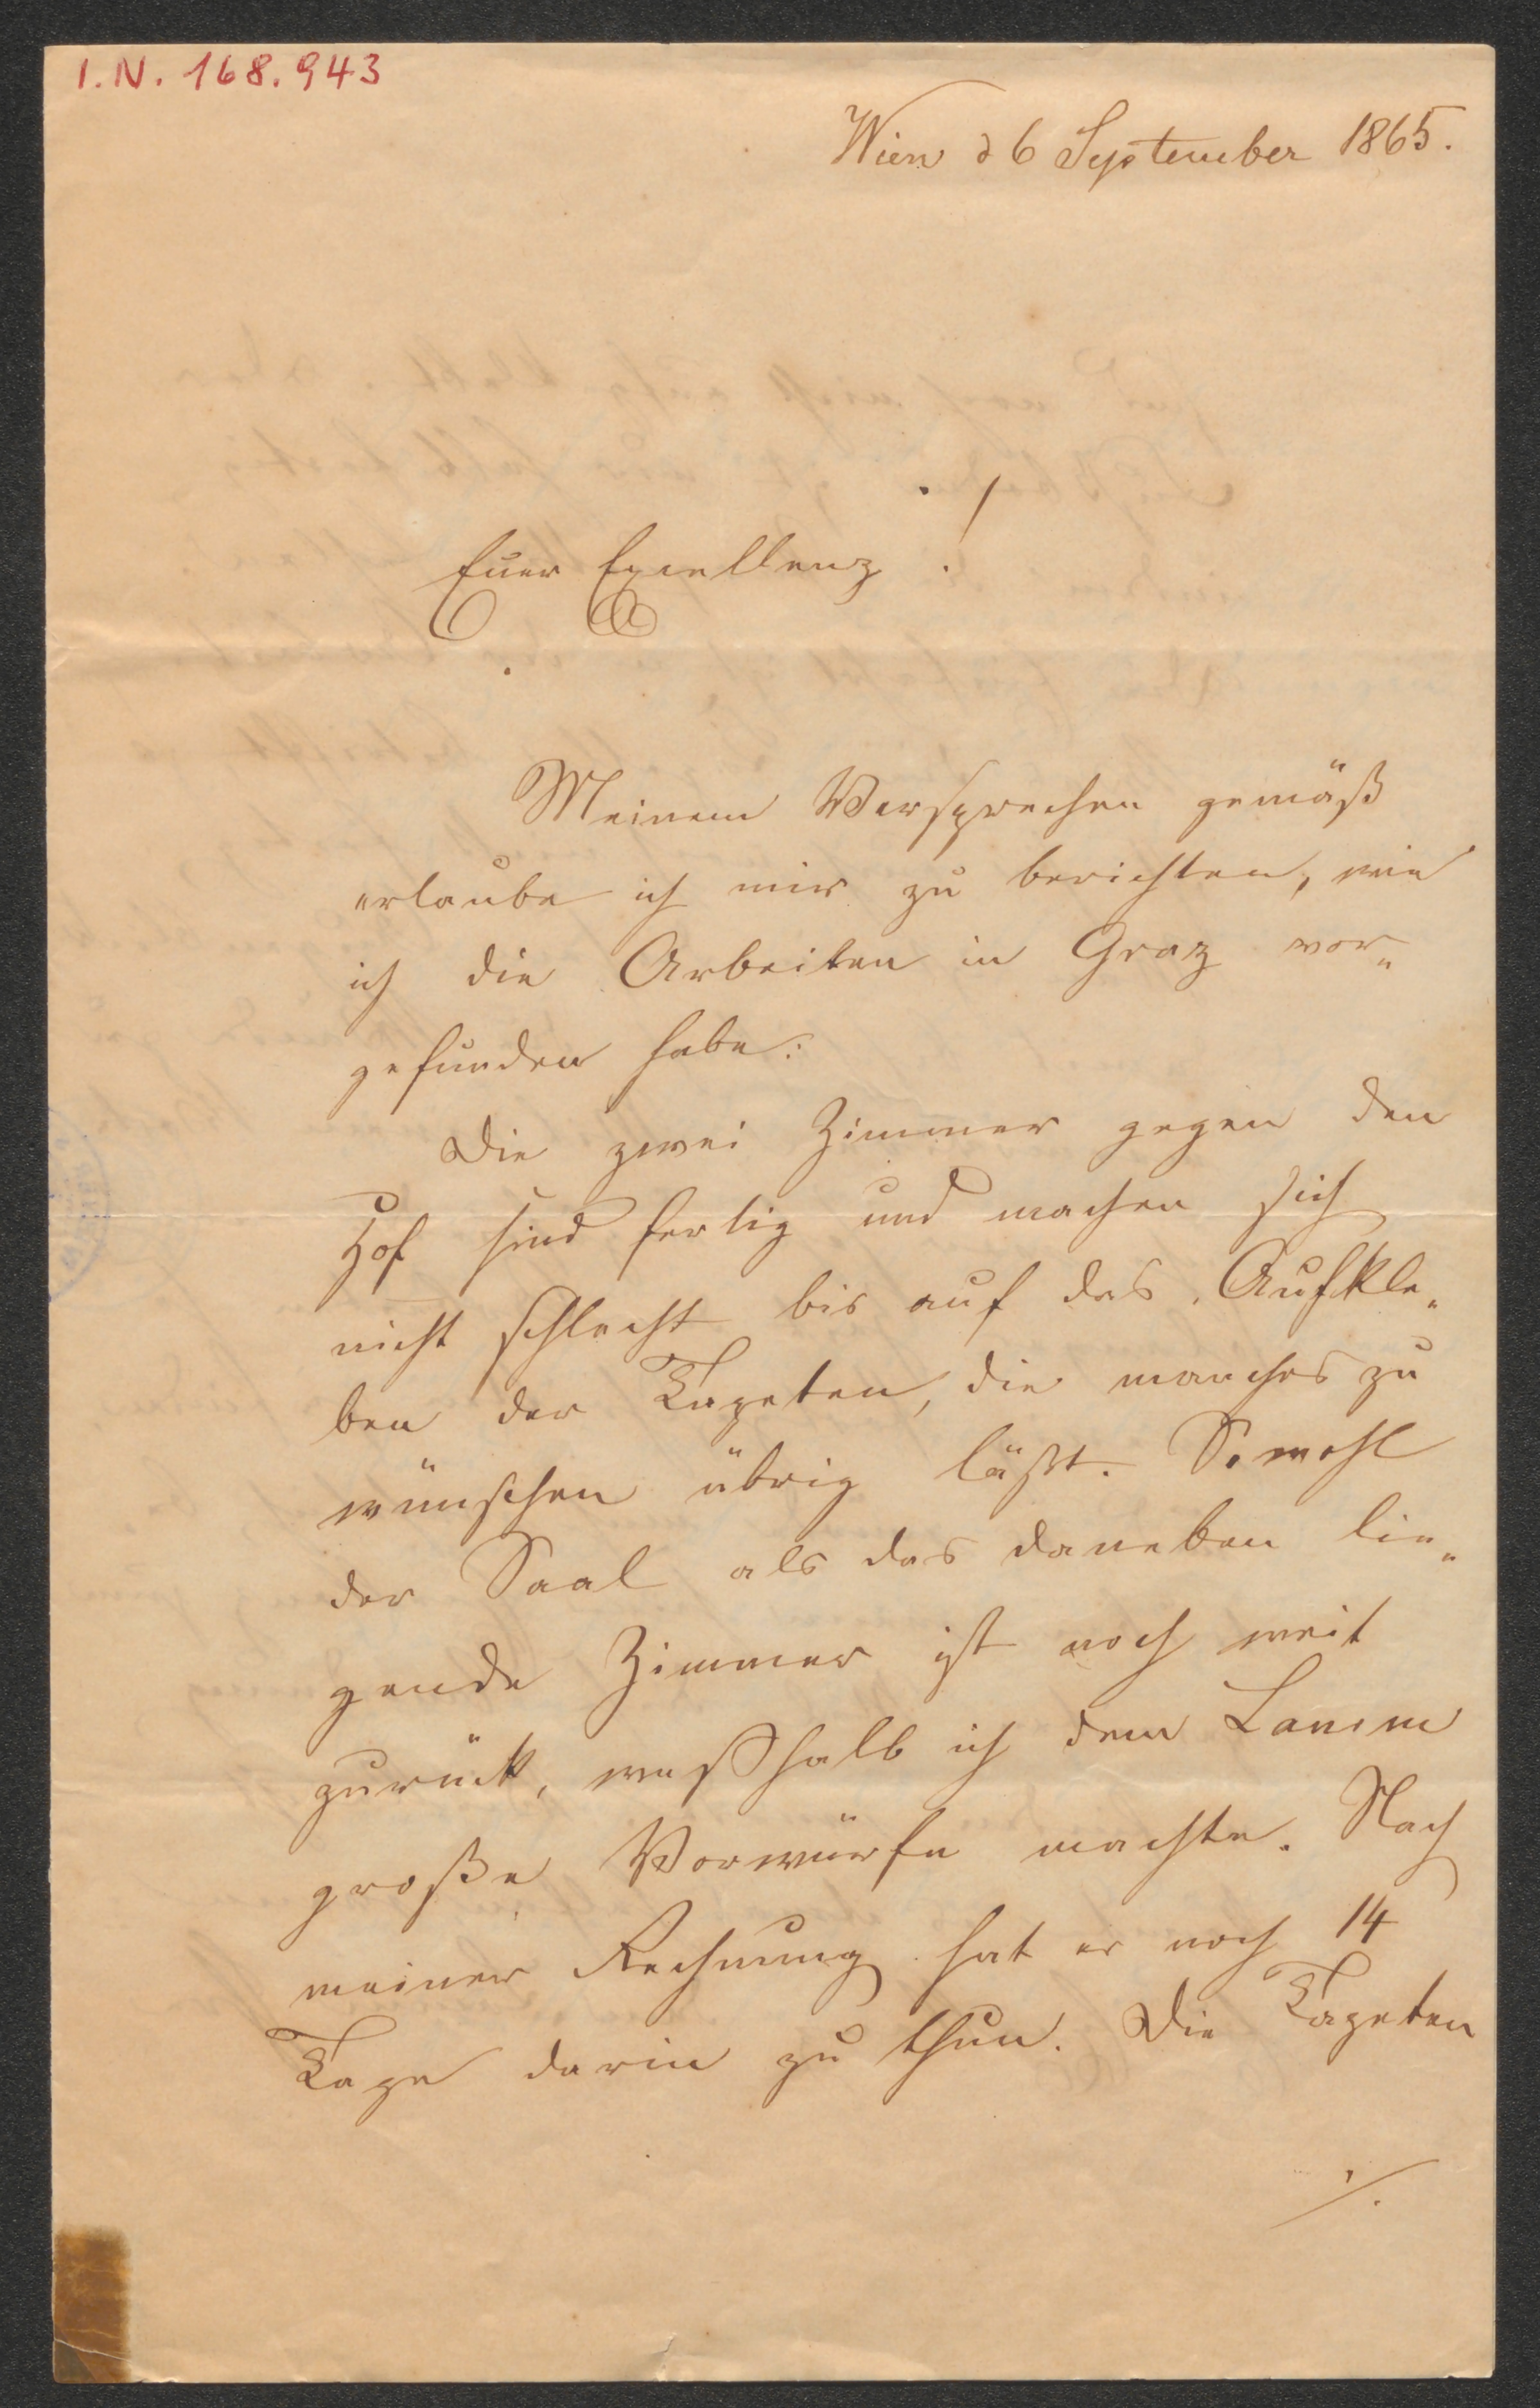 I.N. 168.943
Wien d 6 September 1865.
Euer Excellenz!
Meinem Versprechen gemäß
erlaube ich mir zu berichten, wie
ich die Arbeiten in Graz vor„
gefunden habe:
Die zwei Zimmer gegen den
Hof sind fertig und machen sich
nicht schlecht bis auf das Aufkle„
ben der Tapeten, die manches zu
wünschen übrig läßt. Sowohl
der Saal als das daneben lie„
gende Zimmer ist noch weit
zurück, weßhalb ich dem
große Vorwürfe machte. Nach
meiner Rechnung hat er noch 14
Tage darin zu thun. Die Tapeten
./.